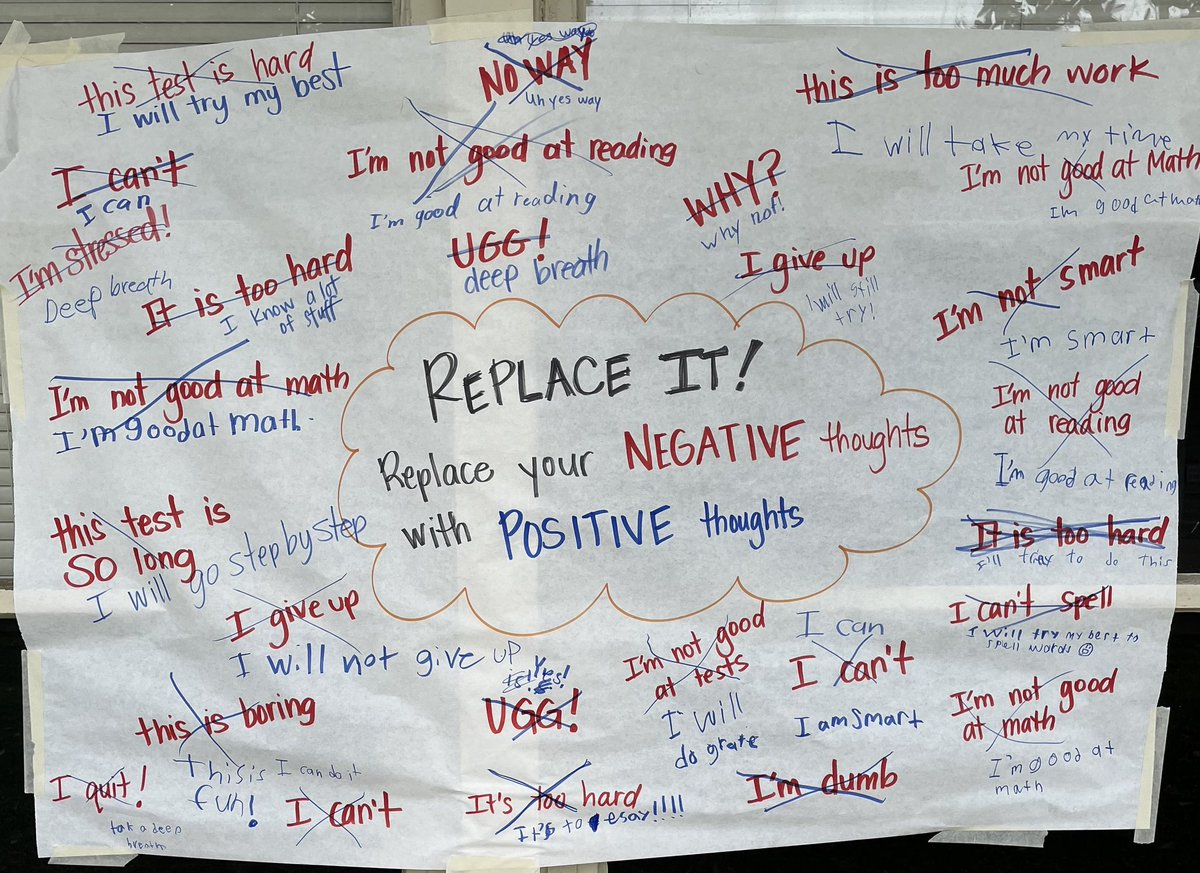 this test is hard
I will try my best
NO WAY
Uh yes way
this is too much work
I will take my time
I can't
I can
I'm not good at reading
I'm good at reading
WHY?
why not!
I'm not good at Math
Im good at math
I'm stressed!
Deep breath
It is too hard
I know a lot
of stuff
UGG!
deep breath
I give up
I will still
try!
I'm not smart
I'm smart
I'm not good at math
I'm good at math.
REPLACE IT!
Replace your NEGATIVE thoughts
with POSITIVE thoughts
I'm not good
at reading
I'm good at reading
this test is
SO long
I will go step by step
It is too hard
I'll tray to do this
I give up
I will not give up
I can't spell
I will try my best to
spell words
I'm not good
at tests
I will
do grate
I can
I can't
Yes!
UGG!
this is boring
This is
fun!
I'm dumb
I am smart
I'm not good
at math
I'm good at
math
I quit!
tak a deep
breath
I can do it
I can't
It's too hard
It's to esay!!!!